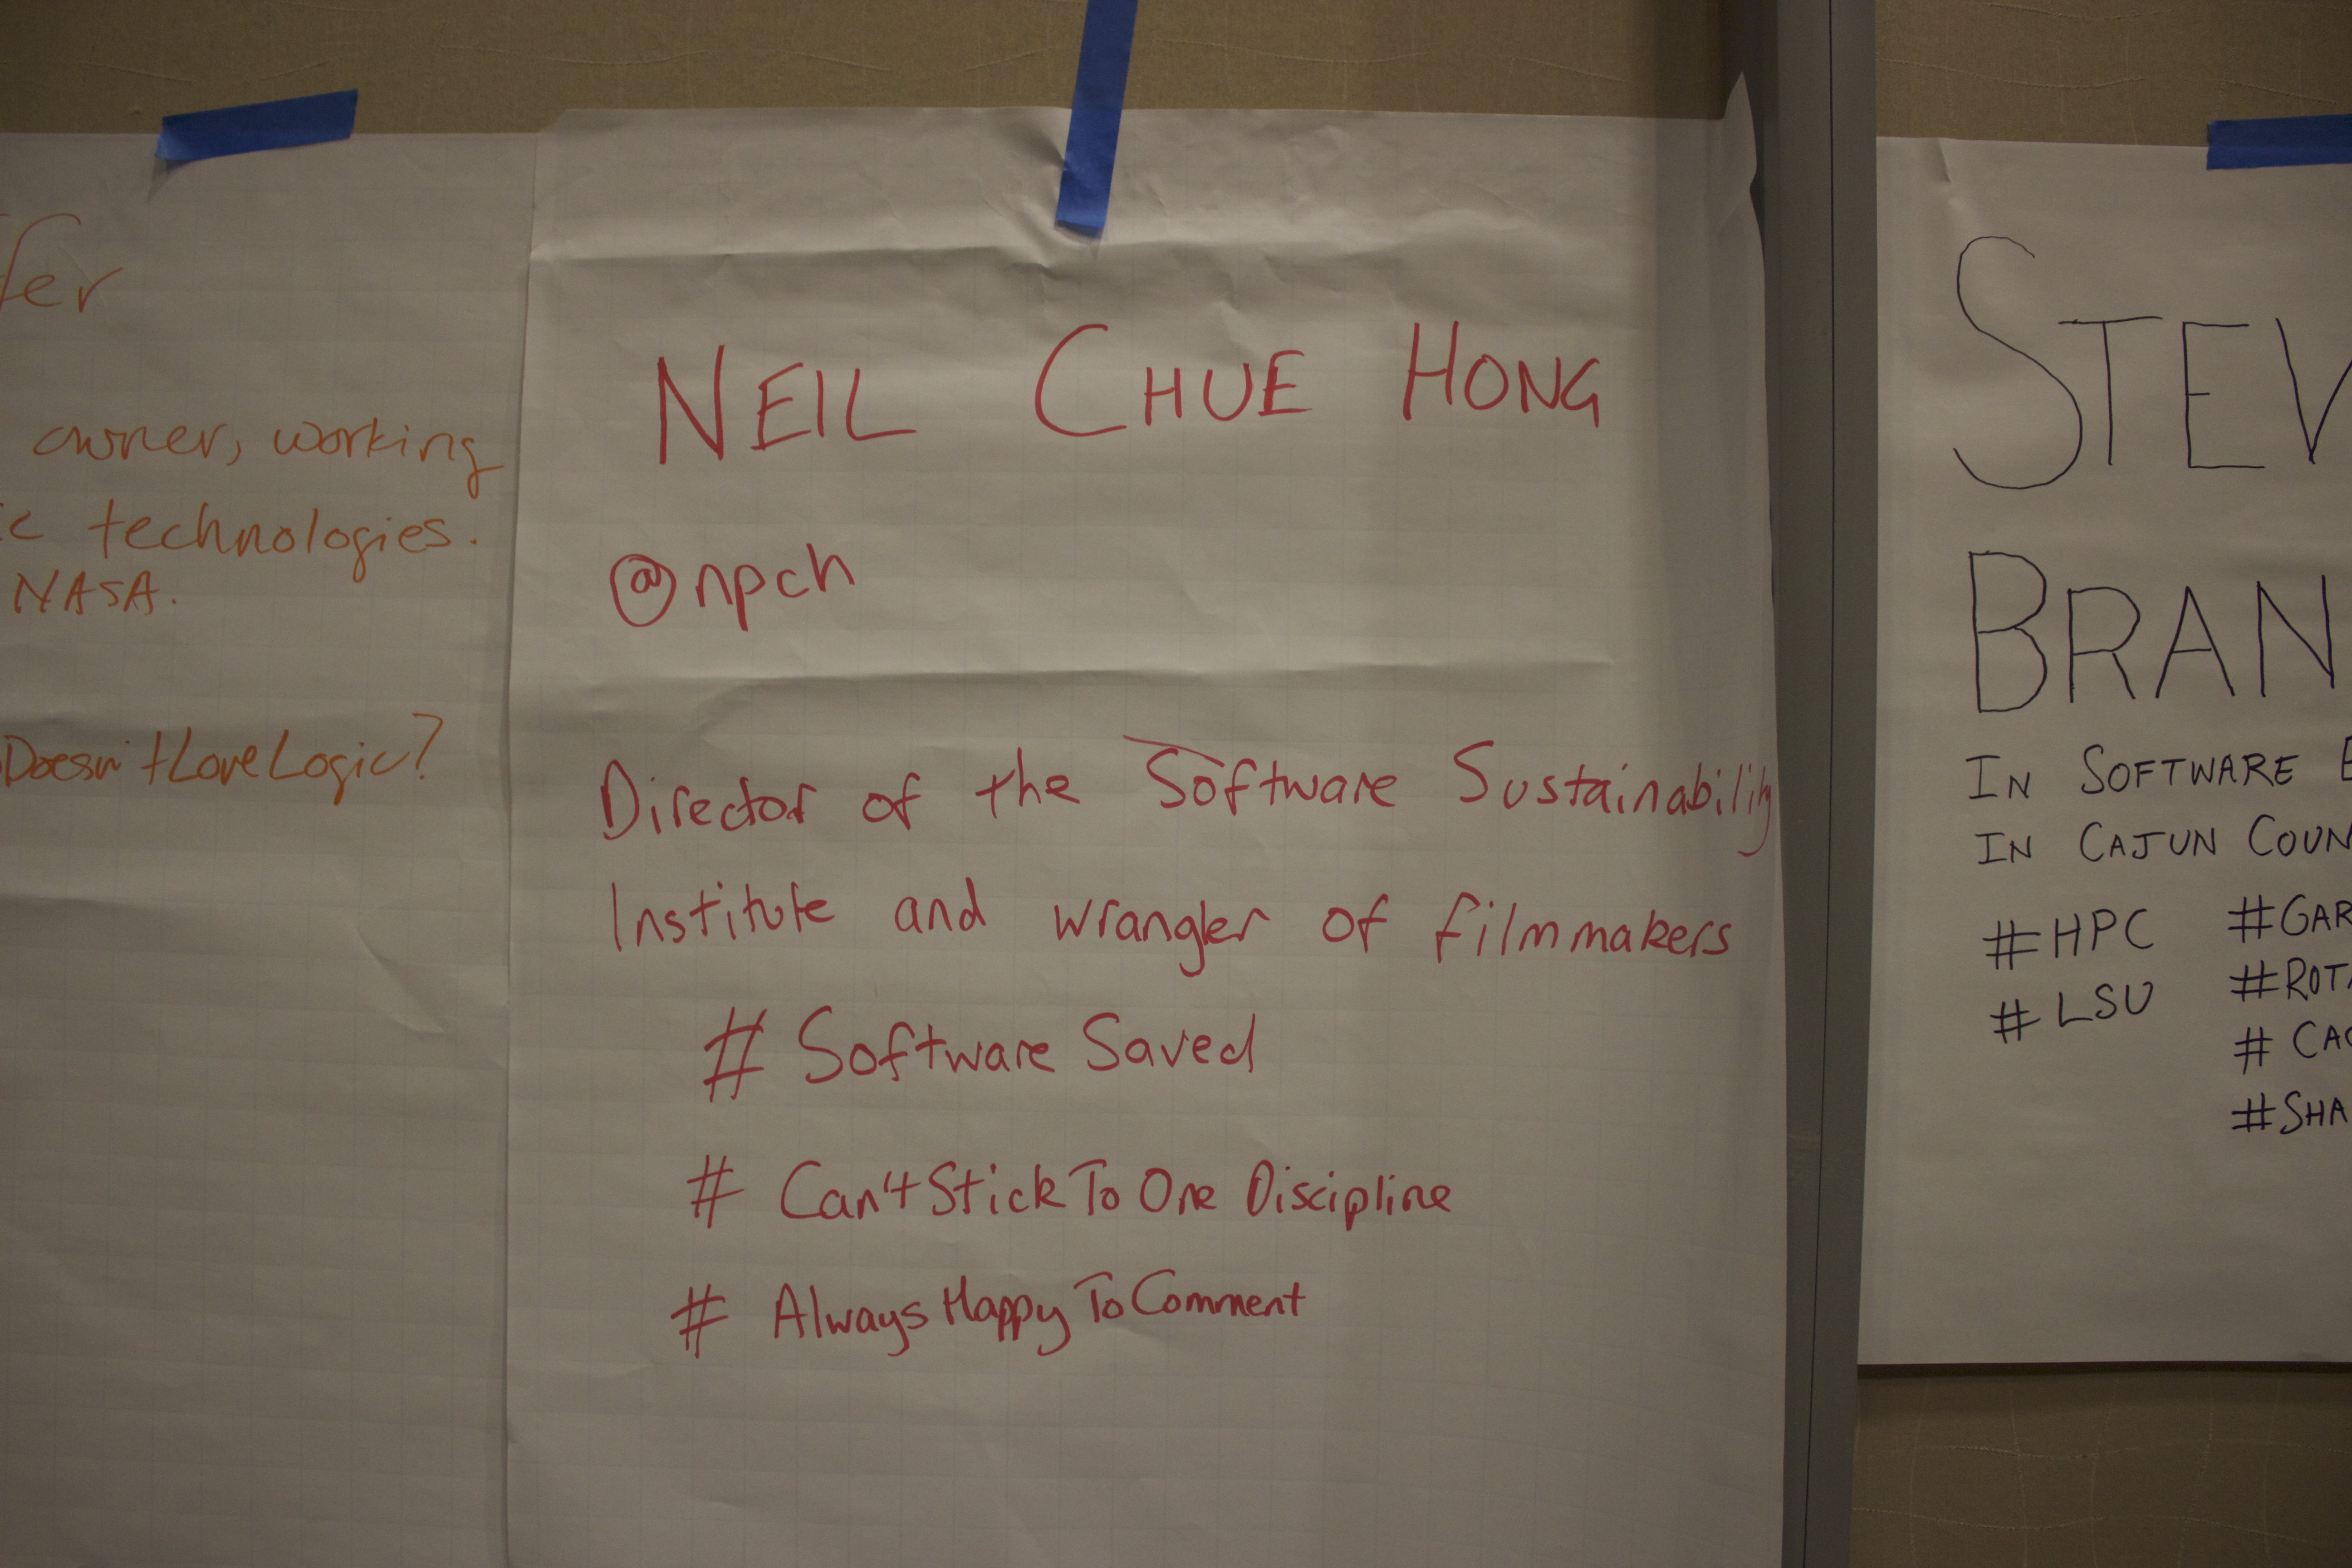 owner, working
technologies.
NASA.
Doesn'tLoveLogic?
NEIL CHUE HONG
@npch
Director of the Software Sustainability
Institute and wrangler of filmmakers
# Software Saved
# Can't Stick To One Discipline
# Always Happy To Comment
STEV
BRAN
IN SOFTWARE
IN CAJUN COUN
#HPC #GAR
#LSU #ROTA
# CAC
#SHA